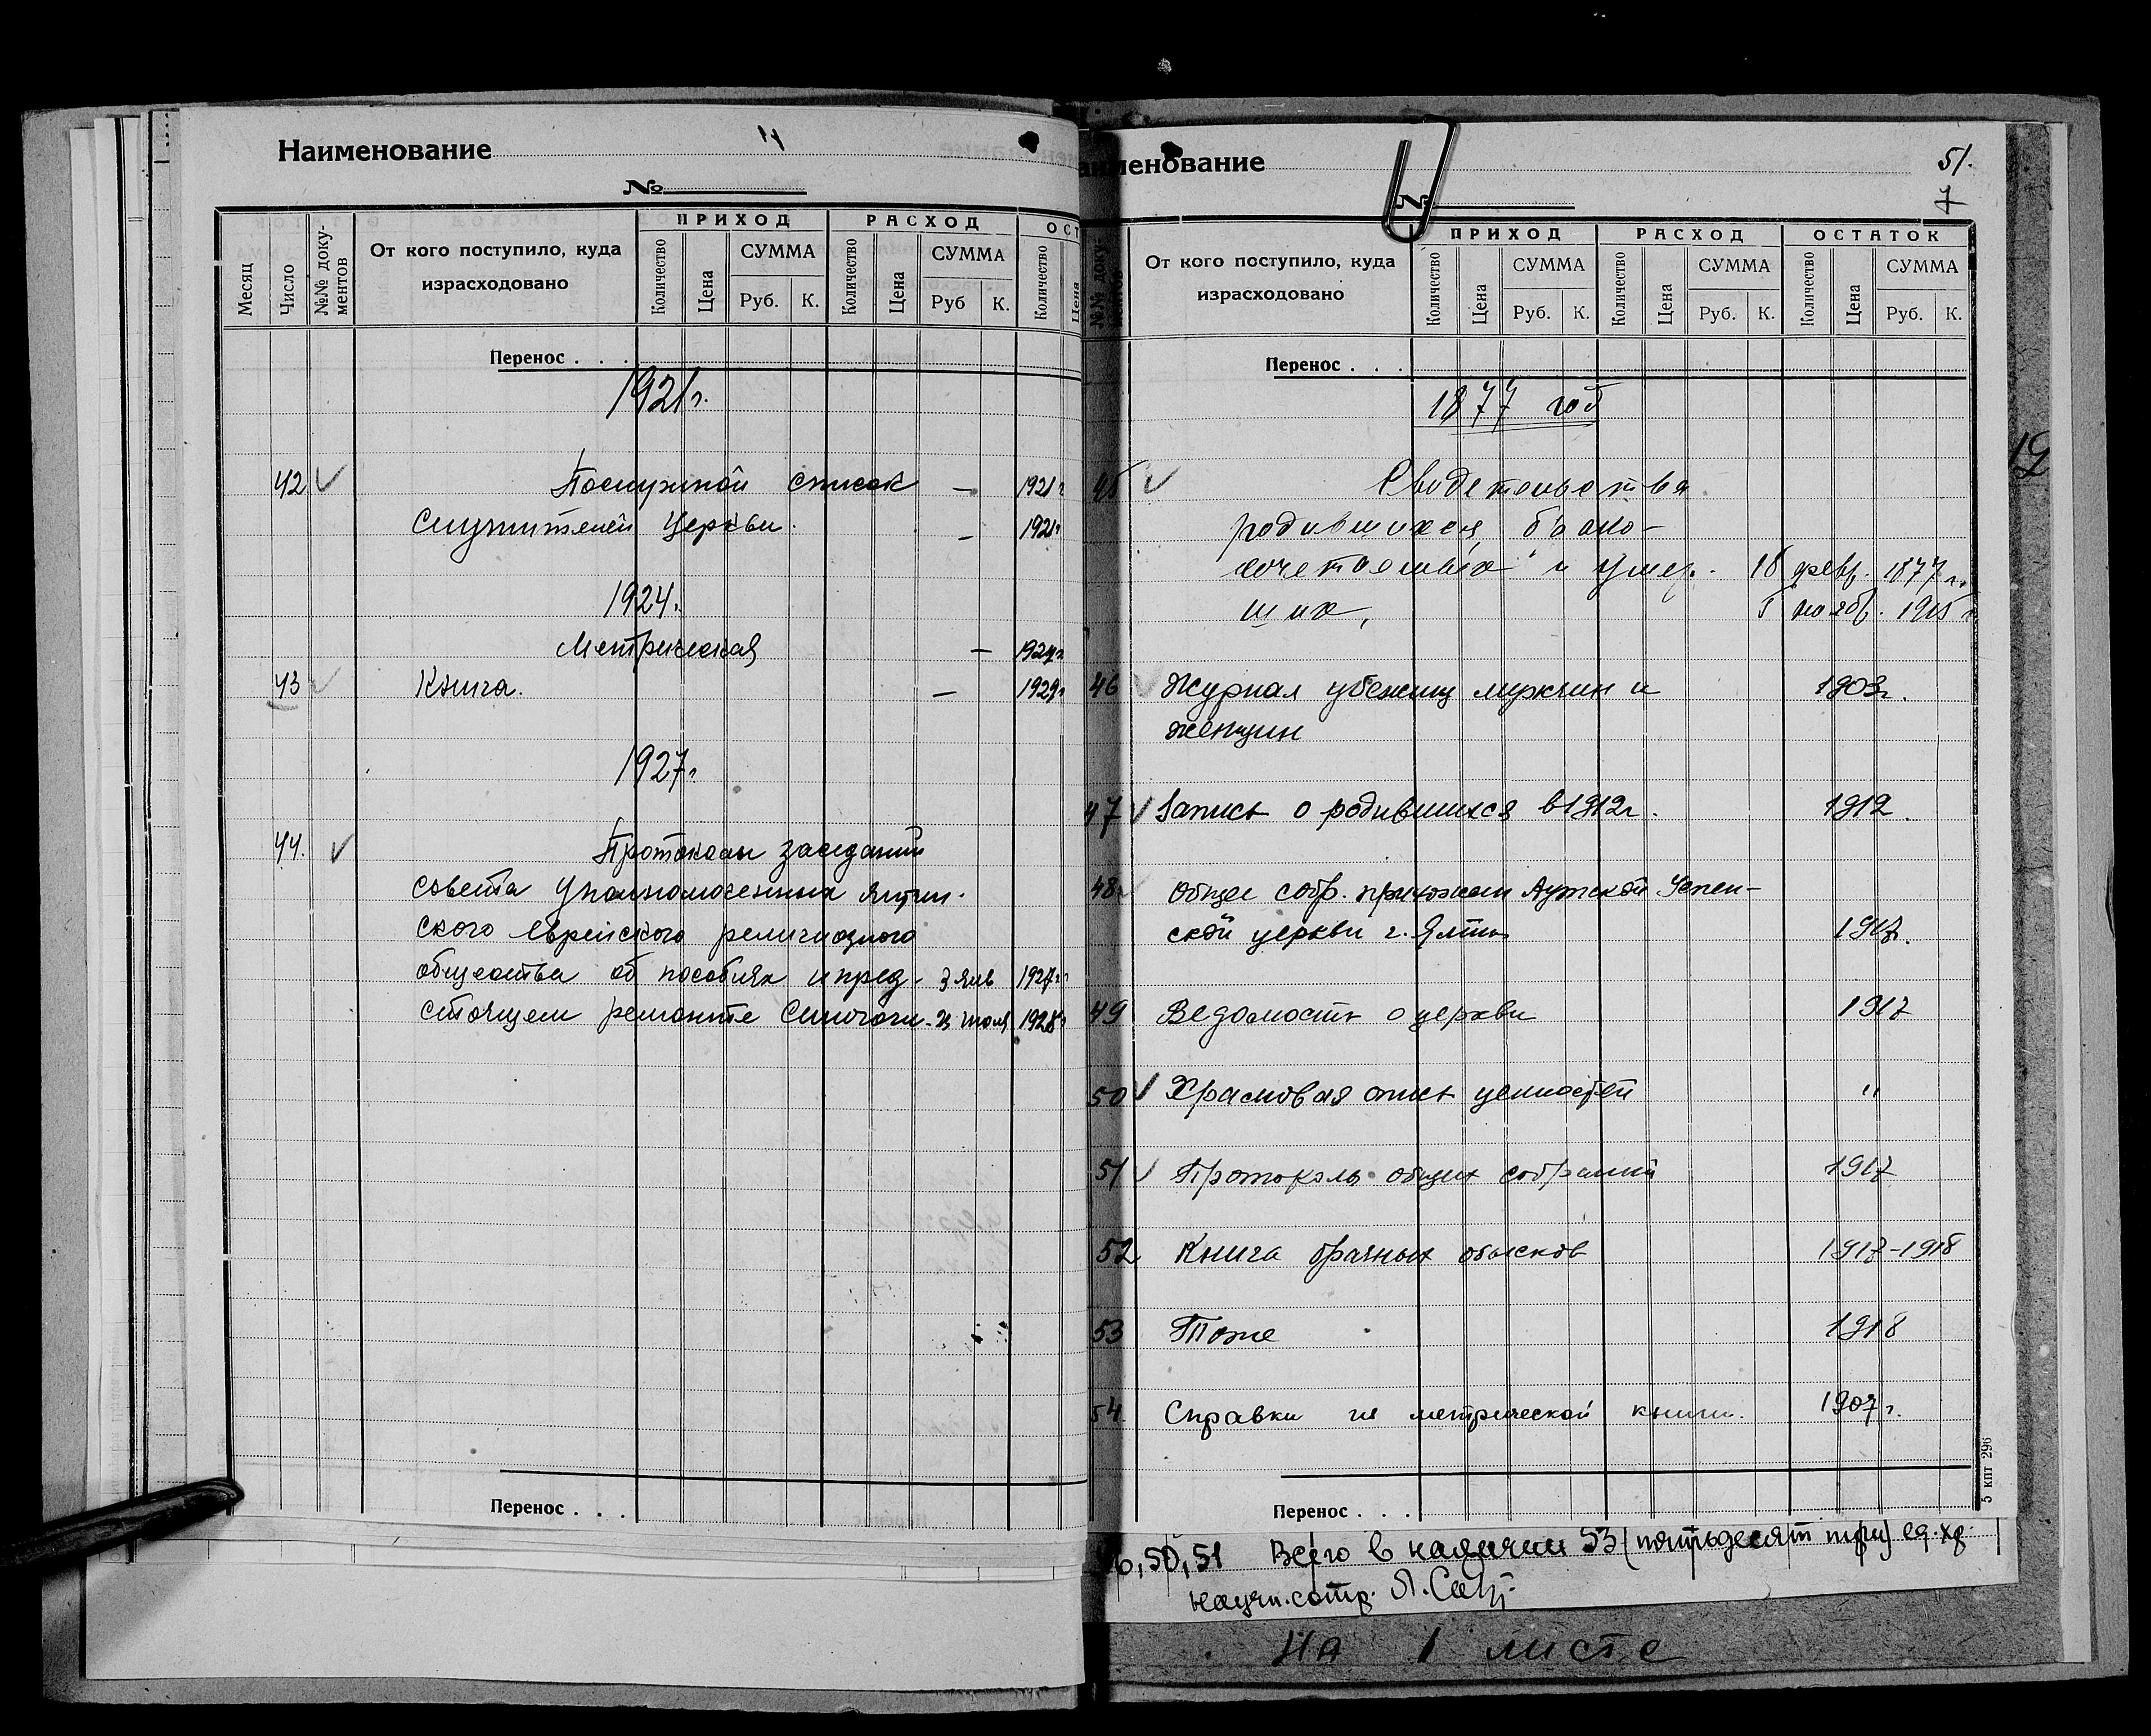 Наименование
№
Месяц
Число
№№ доку-
ментов
От кого поступило, куда
израсходовано
ПРИХОД
РАСХОД
ОСТ
Количество
Цена
СУММА
Руб.
К.
Количество
Цена
СУММА
Руб
К.
Количество
Цена
Перенос . . .
1921г.
42 Послужной список — 1921г
служителей церкви. — 1921г
1924.
Метрическая — 1924г
43 Книга. — 1929г
1927г.
44. Протоколы заседаний
совета уполномоченных Ялтин-
ского еврейского религиозного
общества об пособиях и пред- 3 янв 1927г
стоящем ремонте Синагоги - 23 июля 1928г
Перенос . . .
аименование
51.
7
№№ доку-
ментов
От кого поступило, куда
израсходовано
ПРИХОД
РАСХОД
ОСТАТОК
Количество
Цена
СУММА
Руб.
К.
Количество
Цена
СУММА
Руб.
К.
Количество
Цена
СУММА
Руб.
К.
Перенос . . .
1877 год
19
45 Свидетельства
родившихся, брако-
сочетавшихся и умер- 18 февр. 1877г.
ших, 5 ноябр. 1905г
46 Журнал убежищ мужчин и 1903г.
женщин
47 Запись о родившихся в 1912г. 1912.
48 Общее собр. прихожан Аутской Успен-
ской церкви г. Ялты 1917.
49 Ведомость о церкви 1917
50 Храмовая опись ценностей "
51 Протоколы общих собраний 1917
52 Книга брачных обысков 1917-1918
53 Тоже 1918
54. Справки из метрической книги. 1907г.
Перенос . . .
5 кпт 296
50, 51 Всего в наличии 53 (пятьдесят три) ед. хр.
научн. сотр.
На 1 листе